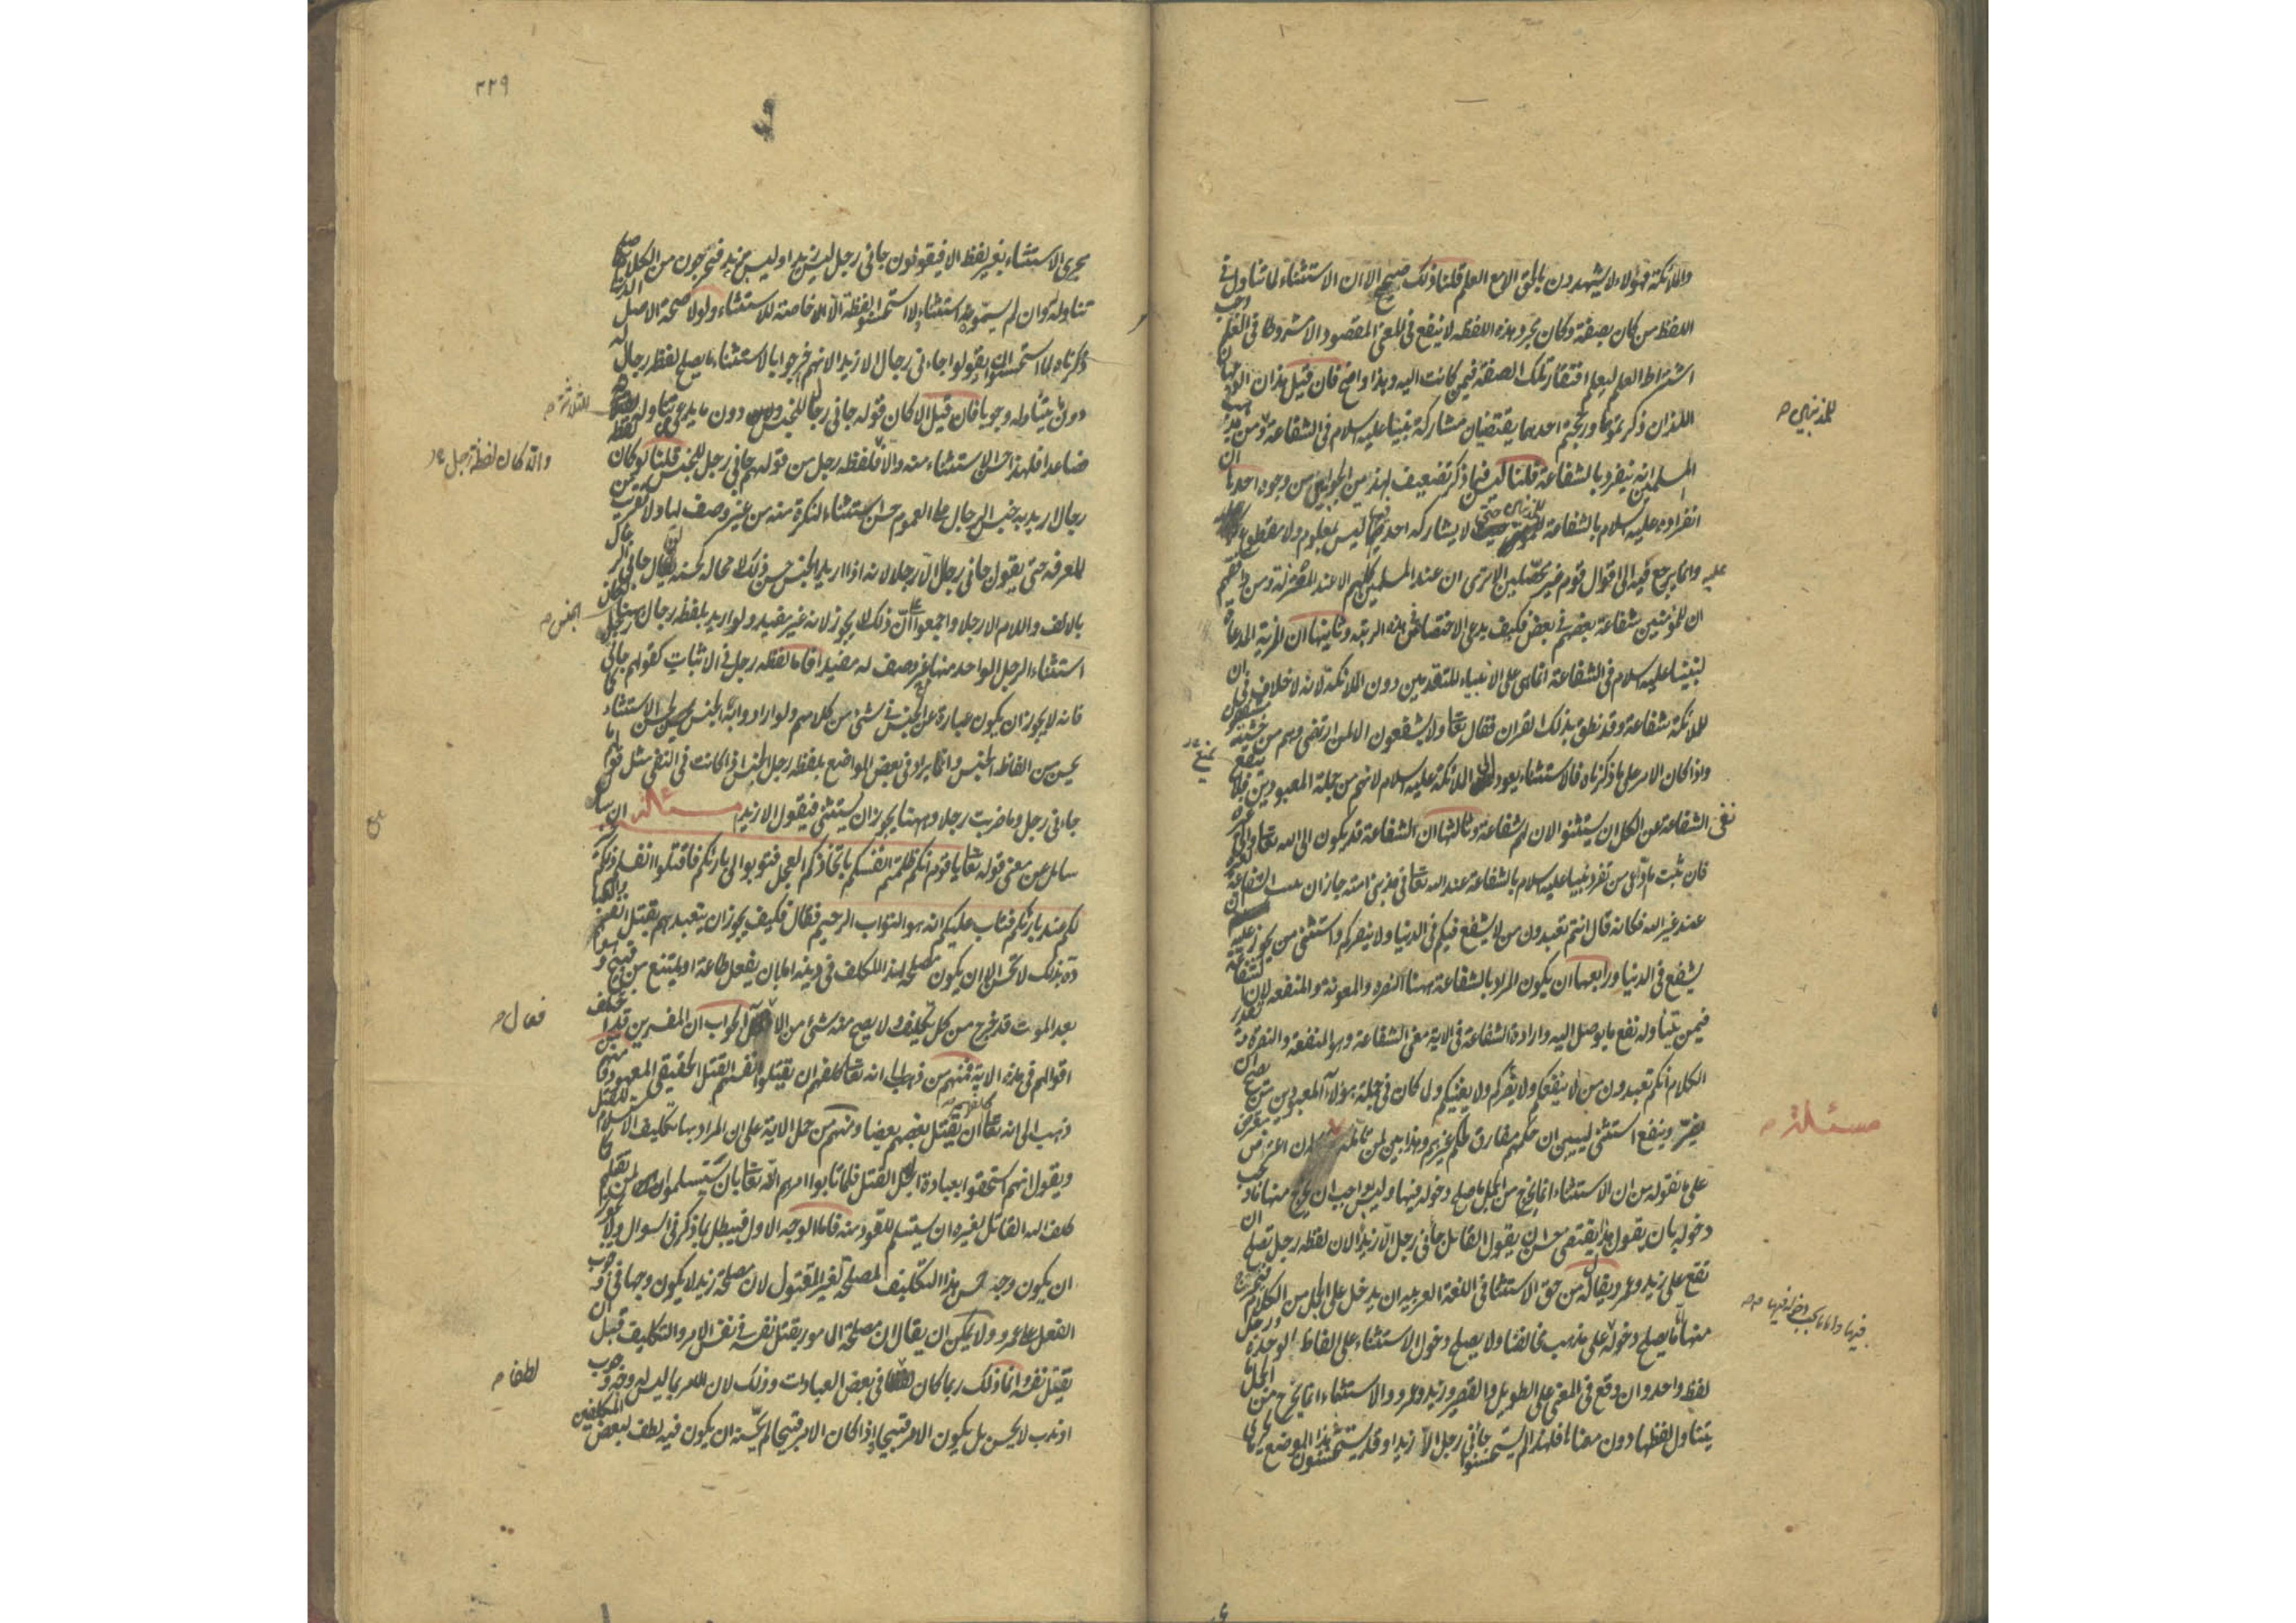 والملائكة فهؤلاء لا يشهدون بالحق الا مع العلم قلنا ذلك صحيح الا ان الاستثناء لما تناول في
اللفظ من كان بصفة وكان مجرد هذه اللفظه لا ينفع في المعنى المقصود الا مشروطا في العلم وجب
اشتراط العلم ليعلم افتقار تلك الصفة فيمن كانت اليه وهذا واضح فان قيل هذان الوجهان
اللذان ذكرتموهما ورجحتم احدهما يقتضيان مشاركة نبينا عليه السلام في الشفاعة ومن مذهب
المسلمين انه ينفرد بالشفاعة قلنا ليس فيما ذكر تضعيف لهذين الجوابين من وجوه احدها ان
انفراده عليه السلام بالشفاعة للمذنبين حتى لا يشاركه احد فيها ليس بمعلوم ولا مقطوع
عليه وانما يرجع فيه الى اقوال قوم غير محصلين الا ترى ان عند المسلمين كلهم الا عند المعتزلة ومن وافقهم
ان للمؤمنين شفاعة بعضهم في بعض فكيف يدعى الاختصاص بهذه الرتبه وثانيها ان المزية المدعاة
لنبينا عليه السلام في الشفاعة انما هي على الانبياء المتقدمين دون الملائكة لانه لا خلاف في ان
للملائكة شفاعة وقد نطق بذلك القران فقال تعا ولا يشفعون الا لمن ارتضى وهم من خشيته مشفقون
واذا كان الامر على ما ذكرناه فالاستثناء يعود الى الملائكة عليهم السلام لانهم من جملة المعبودين فلما
نفى الشفاعة عن الكل ان يستثنوا لان لهم شفاعة وثالثها ان الشفاعة قد يكون الى الله تعا والى غيره
فان ثبت ما ادعى من تفرد نبينا عليه السلام بالشفاعة عند الله تعا في مذنبي امته جاز ان الشفاعة
عند غير الله فكانه قال انتم تعبدون من لا يشفع فيكم في الدنيا ولا ينصركم واستثنى من يجوز عليه ان
يشفع في الدنيا ورابعها ان يكون المراد بالشفاعة ههنا النصره والمعونة والمنفعه لان الشفاعة
فيمن يتناوله نفع ما يوصل اليه وارادة الشفاعة في الاية معنى الشفاعة وهو المنفعة والنصرة وتقدير
الكلام انكم تعبدون من لا ينفعكم ولا يضركم ولا يغنيكم ولما كان في جملة هؤلاء المعبودين من يصح ان
يضر وينفع استثنى ليبين ان حكمهم مفارق لحكم غيرهم وهذا بين لمن تامله ان اعترض معترض
على ما نقوله من ان الاستثناء انما يخرج من الجمل ما صلح دخوله فيها وليس بواجب ان يخرج منها ما يجب
دخوله بان يقول هذا يقتضي حسن ان يقول القائل جاني رجل الا زيد الان لفظه رجل تصلح ان
تقع على زيد وعمرو ويقال له من حق الاستثنا في اللغة العربيه ان يدخل على الجمل من الكلام فيخرج
منها ما يصلح دخوله على مذهب مخالفنا ولا يصلح دخول الاستثناء على الفاظ الوحدة ورجل
لفظ واحد وان وقع في المعنى على الطويل والقصير وزيد وعمرو والاستثناء انما يخرج من الجمل ما
يتناول لفظها دون معناه فلهذا لم يستحسنوا جاني رجل الا زيدا وقد يستحسنون في هذا الموضع
للمذنبين
مسئلة
٢٢٩
يجري الاستثناء بغير لفظ الا فيقولون جاني رجل ليس زيدا وليس بزيد فيخرجون من الكلام ما صلح
تناوله وان لم يسموه استثناء ولا استعملوا لفظة الا الخاصة للاستثناء ولولا صحة الاصل الذي
ذكرناه لما استحسنوا ان يقولوا جاءني رجال الا زيد الانهم اخرجوا بالاستثناء ما يصلح لفظ رجال له
دون ما يتناوله وجوبا فان قيل الا كان قوله جاني رجال للجنس دون ما يدعى تناوله للثلثة
فصاعدا فلهذا حسن الاستثناء منه والا فلفظه رجل من قولهم جاني رجل للجنس قلنا لو كان لفظ
رجال اريد به جنس الرجال على العموم لحسن استثناء النكرة منه من غير وصف لها ولا تقريب من
المعرفه حتى يقول جاني رجال الا رجلا لانه اذا اريد الجنس حسن ذلك لا محاله كحسنه لو قال جاني الرجال
بالالف واللام الا رجلا واجمعوا على ان ذلك لا يجوز لانه غير مفيد ولو اريد بلفظ رجال ههنا الجنس لكان
استثناء الرجل الواحد منها بغير وصف له مفيدا فاما لفظه رجل في الاثبات كقولهم جاني رجل
فانه لا يجوز ان يكون عبارة عن الجنس في شئ من كلامهم ولو ارادوا به الجنس لحسن الاستثناء كما
يحسن من الفاظ الجنس وانما يراد في بعض المواضع بلفظه رجل الجنس اذا كانت في النفي مثل قولهم ما
جاءني رجل وما ضربت رجلا وههنا يجوز ان يستثنى فيقول الا زيد مسئلة ان سال
سايل عن معنى قوله تعا يا قوم انكم ظلمتم انفسكم باتخاذكم العجل فتوبوا الى بارئكم فاقتلوا انفسكم ذلكم خير
لكم عند بارئكم فتاب عليكم انه هو التواب الرحيم فقال فكيف يجوز ان يتعبدهم بقتل انفسهم والعبا
دة بذلك لا تحسن الا ان يكون مصلحة لهذا المكلف في دينه اما بان يفعل طاعة او يمتنع من قبيح وهو
بعد الموت قد خرج من كل تكليف ولا يصح منه شئ من الافعال الجواب ان المفسرين قد اختلف
اقوالهم في هذه الاية فمنهم من ذهب الى انه تعا كلفهم ان يقتلوا انفسهم القتل الحقيقي المعهود ومنهم من
ذهب الى انه تعا كلفهم ان يقتل بعضهم بعضا ومنهم من حمل الاية على ان المراد بها تكليف الاستسلام للقتل
ويقول انهم استحقوا بعبادة العجل القتل فلما تابوا امرهم الله تعا بان يستسلموا لمن يقتلهم كما
كلف الله القاتل بغيره ان يستسلم للقود منه فاما الوجه الاول فيبطل بما ذكر في السوال ولا يجوز
ان يكون وجه حسن هذا التكليف المصلحة لغير المقتول لان مصلحة زيد لا يكون وجها في وجوب
الفعل على عمرو ولا يمكن ان يقال ان مصلحة المامور بقتل نفسه في نفس الامر والتكليف قبل ان
يقتل نفسه وانما ذلك ربما كان لطفا في بعض العبادات وذلك لان الامر بما ليس له وجه وجوب
او ندب لا يحسن بل يكون الامر قبيحا واذا كان الامر قبيحا لم يحسنه ان يكون فيه لطف لبعض المكلفين
للثلثة
والا كان لفظة رجل
الجنس
فعال
لطفا